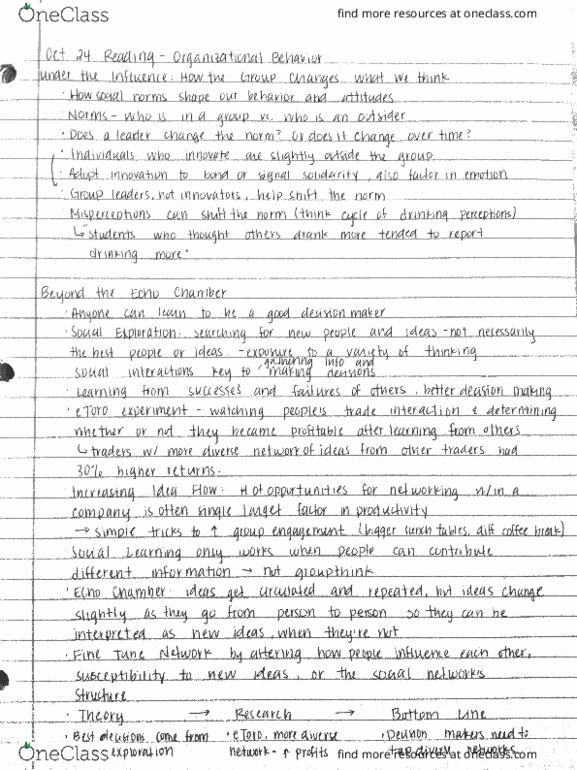 OneClass
find more resources at oneclass.com
Oct 24 Reading - Organizational Behavior
under the Influence: How the Group Changes what we think
· How social norms shape our behavior and attitudes
Norms - who is in a group vs. who is an outsider
· Does a leader change the norm? Or does it change over time?
· Individuals who innovate are slightly outside the group
· Adopt innovation to bond or signal solidarity, also factor in emotion
· Group leaders, not innovators, help shift the norm
Misperceptions can shift the norm (think cycle of drinking perceptions)
↳ "students who thought others drank more tended to report
drinking more"
Beyond the Echo Chamber
· Anyone can learn to be a good decision maker
· Social Exploration: searching for new people and ideas - not necessarily
the best people or ideas. - exposure to a variety of thinking
social interactions key to gathering info and making decisions
· Learning from successes and failures of others, better decision making
· eToro experiment - watching people's trade interaction & determining
whether or not they became profitable after learning from others
↳ traders w/ more diverse network of ideas from other traders had
30% higher returns.
Increasing Idea Flow: # of opportunities for networking w/in a
company is often single largest factor in productivity
→ simple tricks to ↑ group engagement (bigger lunch tables, diff coffee break)
· Social Learning only works when people can contribute
different information → not groupthink
· Echo Chamber: ideas get circulated and repeated, but ideas change
slightly as they go from person to person so they can be
interpreted as new ideas, when they're not
· Fine Tune Network by altering how people influence each other,
susceptibility to new ideas, or the social network's
structure
· Theory → Research → Bottom Line
· Best decisions come from · eToro, more diverse · Decision makers need to
exploration network - ↑ profits tap diverse networks
OneClass
find more resources at oneclass.com